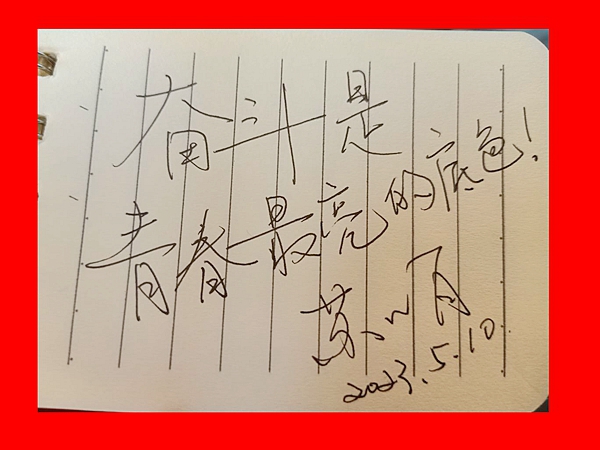 奋斗是
青春最亮的底色!
苏
2023.5.10